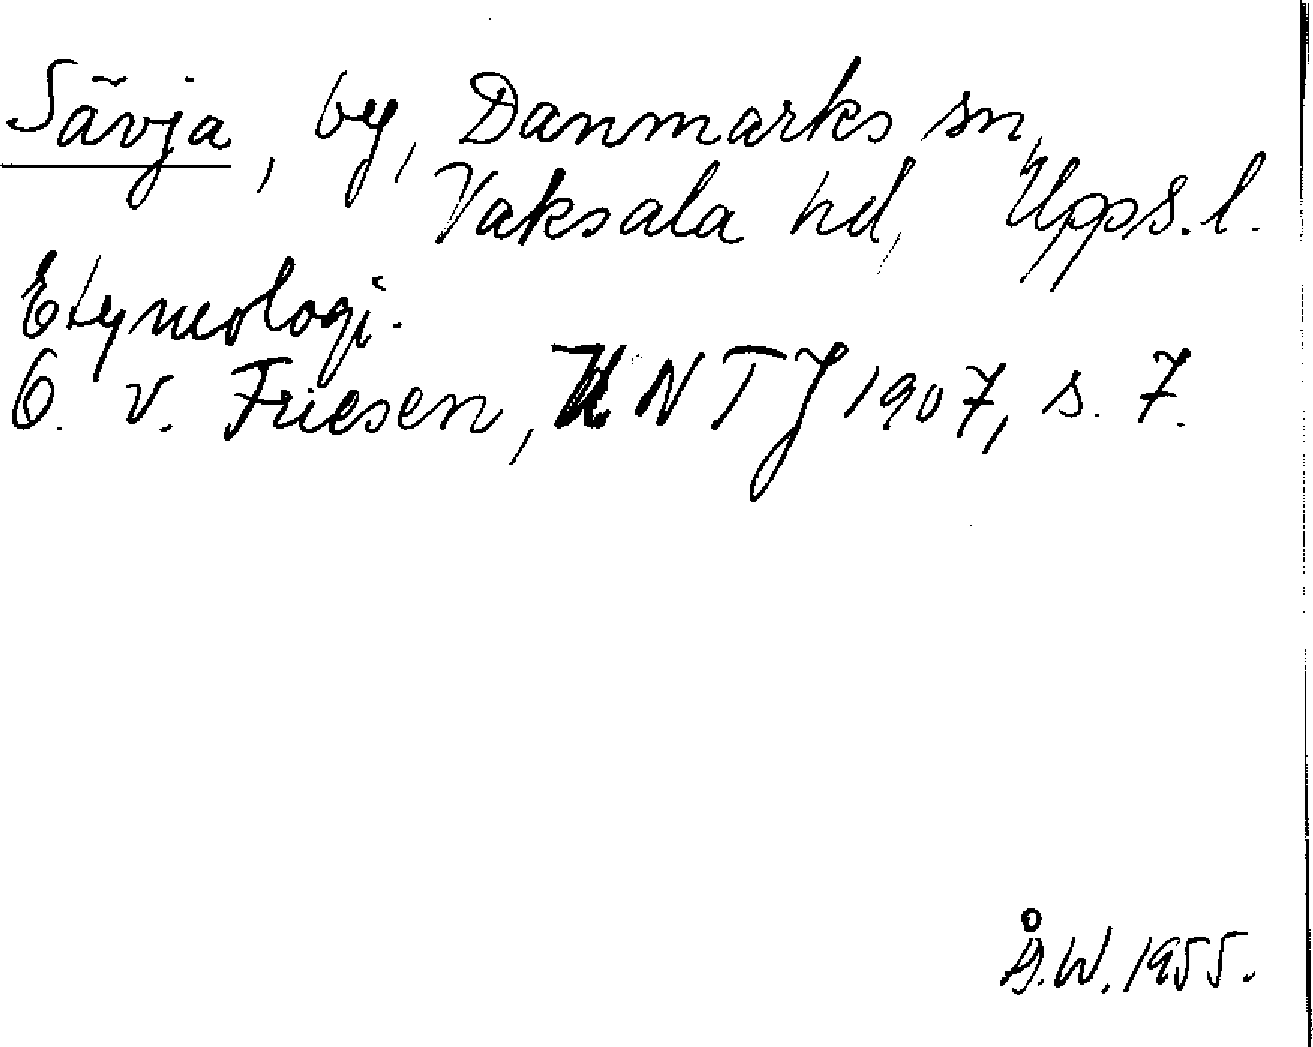 Sävja, by, Danmarks sn,
Vaksala hd, Upps. l.
Etymologi.
O. v. Friesen, UNTJ 1907, s. 7.
Å.W. 1955.